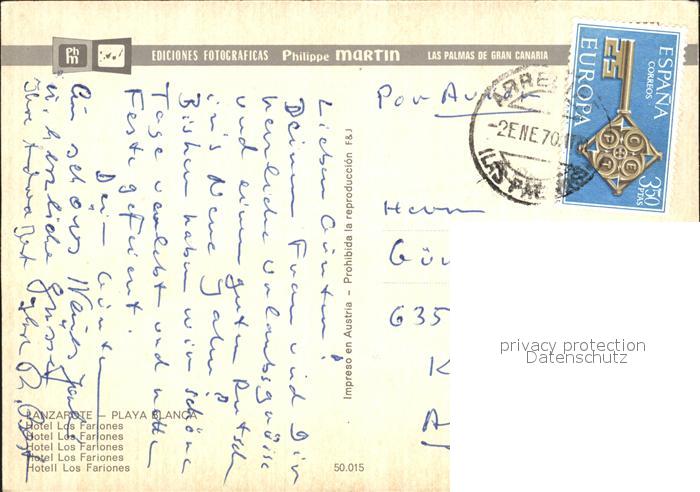 EDICIONES FOTOGRAFICAS Philippe MARTIN LAS PALMAS DE GRAN CANARIA
Ph m
ESPAÑA
CORREOS
EUROPA
3'50
PTAS
ARRE
-2 ENE 70
(LAS PAL
Por
Herrn
635
privacy protection
Datenschutz
Lieber Günter!
Deiner Frau und Dir
herzliche Urlaubsgrüsse
und einen guten Rutsch
ins Neue Jahr!
Bisher haben wir schöne
Tage verlebt und nette
Feste gefeiert.
Dein Günter
Ein schönes Neues Jahr
herzliche Grüsse
Impreso en Austria – Prohibida la reproducción F&J
LANZAROTE – PLAYA BLANCA
Hotel Los Fariones
Hotel Los Fariones
Hotel Los Fariones
Hotel Los Fariones
Hotell Los Fariones
50.015